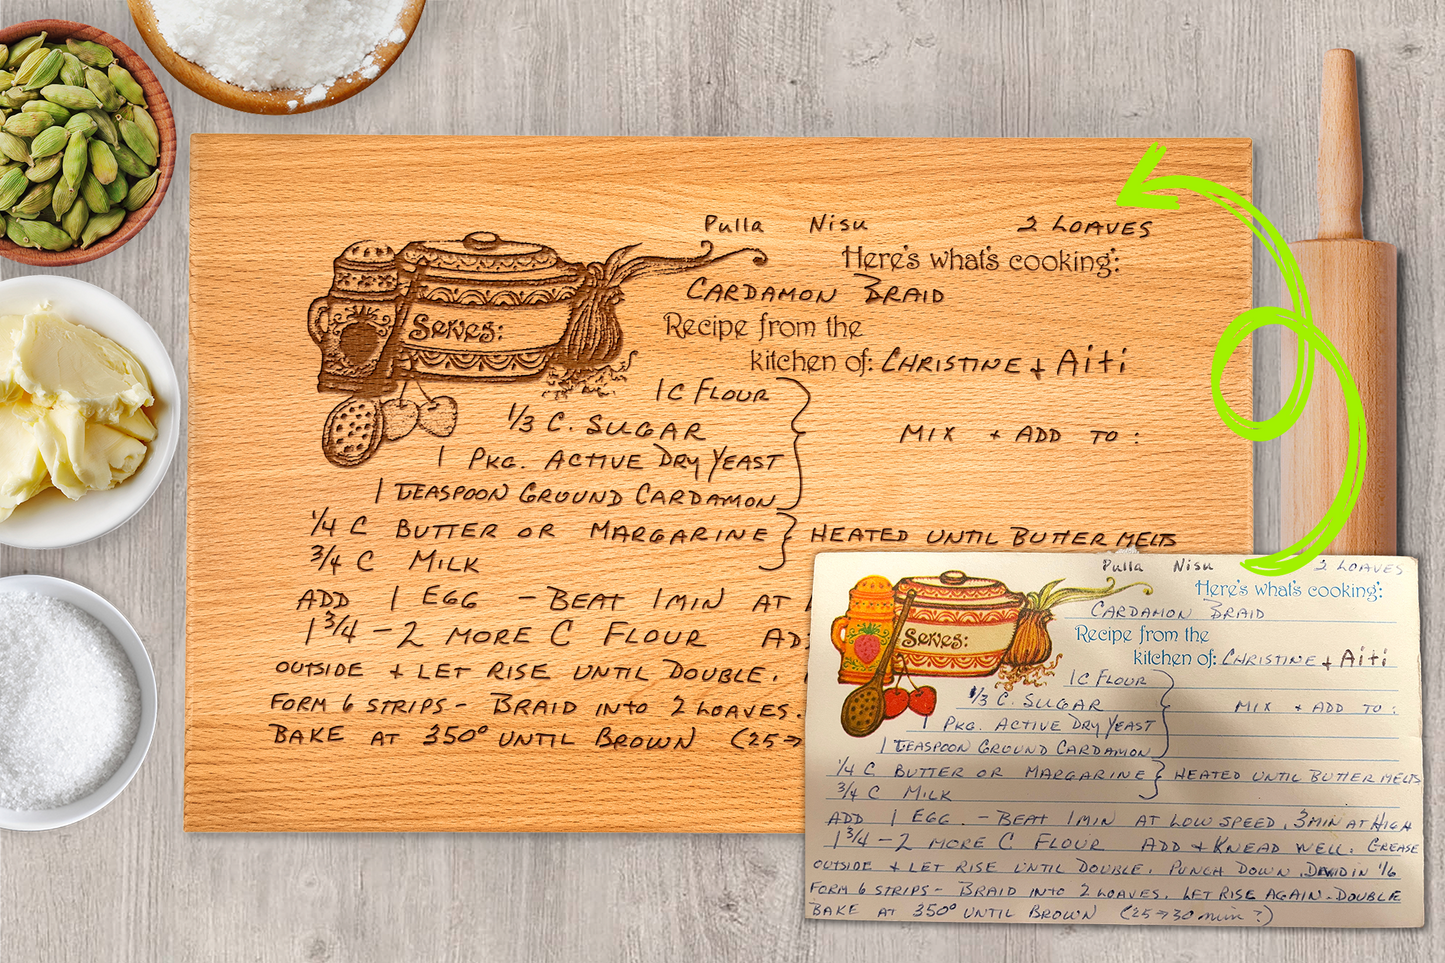 Pulla Nisu 2 LOAVES
Here's what's cooking:
CARDAMON BRAID
Serves:
Recipe from the
kitchen of: CHRISTINE + Aiti
1 C FLOUR
1/3 C. SUGAR
MIX + ADD TO:
1 PKG. ACTIVE DRY YEAST
1 TEASPOON GROUND CARDAMON
1/4 C BUTTER OR MARGARINE } HEATED UNTIL BUTTER MELTS
3/4 C MILK
ADD 1 EGG - BEAT 1 MIN AT
1 3/4 - 2 MORE C FLOUR AD
OUTSIDE + LET RISE UNTIL DOUBLE.
FORM 6 STRIPS - BRAID INTO 2 LOAVES.
BAKE AT 350° UNTIL BROWN (25→
Pulla Nisu 2 LOAVES
Here's what's cooking:
CARDAMON BRAID
Serves:
Recipe from the
kitchen of: CHRISTINE + Aiti
1 C FLOUR
1/3 C. SUGAR
MIX + ADD TO:
1 PKG. ACTIVE DRY YEAST
1 TEASPOON GROUND CARDAMON
1/4 C BUTTER OR MARGARINE } HEATED UNTIL BUTTER MELTS
3/4 C MILK
ADD 1 EGG. - BEAT 1 MIN AT LOW SPEED, 3 MIN AT HIGH
1 3/4 - 2 MORE C FLOUR ADD + KNEAD WELL. GREASE
OUTSIDE + LET RISE UNTIL DOUBLE. PUNCH DOWN, IN 1/6
FORM 6 STRIPS - BRAID INTO 2 LOAVES. LET RISE AGAIN - DOUBLE
BAKE AT 350° UNTIL BROWN (25→30 min?)